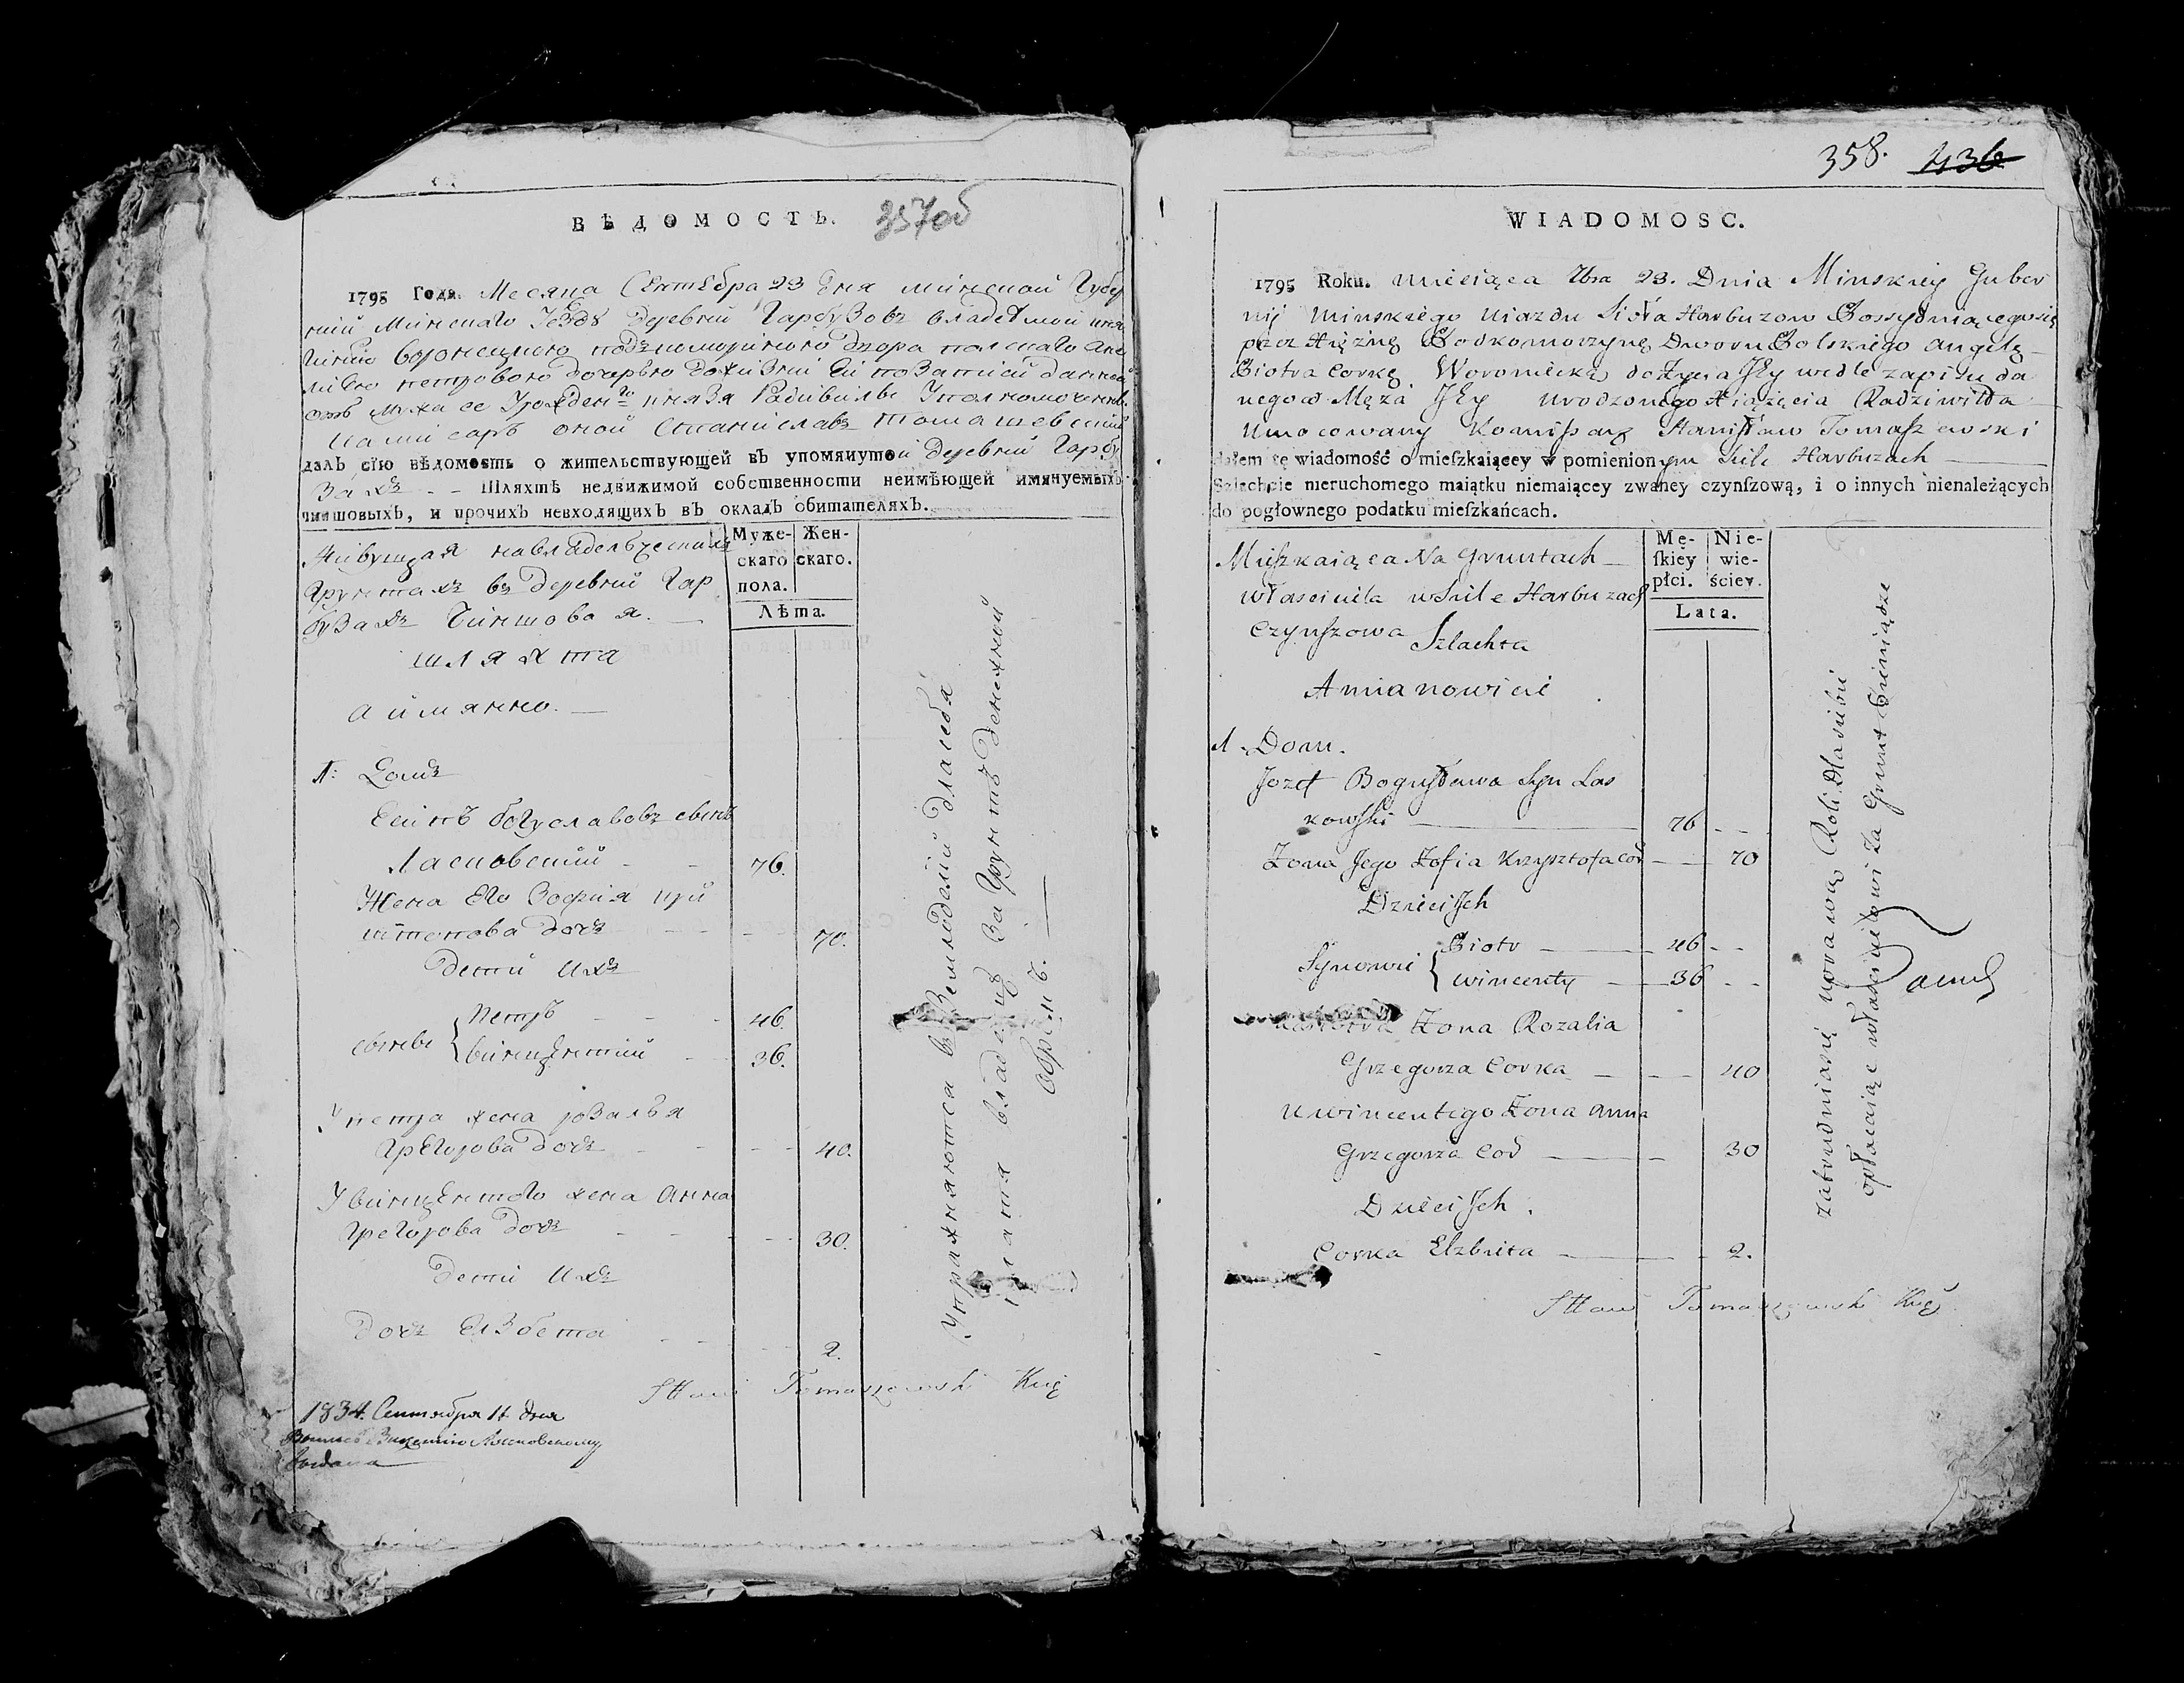 ВѢДОМОСТЬ. 357об
1795 Года. Месяца Сентебра 23 дня минской Губер
ний Минскаго Уезду деревни Гарбузовъ владеемой кня
гинею Воронецкою подкоморинною двора полскаго Анге
лиею петровою дочерью
отъ мужа ее Урожден го князя Радивила Уполномоченны
Камисаръ оной Станиславъ томашевский
далъ сїю вѣдомость о жительствующей въ упомянутой деревни Гарбу
захъ - - Шляхтѣ недвижимой собственности неимѣющей имянуемыхъ
чиншовыхъ, и прочихъ невходящихъ въ окладъ обитателяхъ.
Муже-скаго пола. Жен-скаго.
Лѣта.
Живущая на владельческихъ
Грунтахъ въ деревни Гар
бузахъ Чиншовая. —
шляхта
а имянно. —
1: Домъ
Есипъ богуславовъ сынъ
Ласковский - - 76.
Жена Его Зофия кри
штопова дочь - - - 70.
Дети ихъ
сынове { Петръ - - - 46.
винцентий - 36.
У петра жена розалья
Грегорова дочь - - - 40.
У винцентого жена анна
Грегорова дочь - - - 30.
Дети ихъ
Дочь Елзбета - - - 2.
Упражняются въ Земледелии для себя
платя владельцу за Грунтъ денежный
оброкъ. —
Sttani Tomaszewski Kmę
1834. Сентября 11 дня
Викентию Лясковскому
выдана
358. 436
WIADOMOSC.
1795 Roku. Miesiąca 7bra 23. Dnia Minskiey Guber
nij Minskiego Uiazdu Sioła Harbuzow Possyduiącegosię
przez Xiężnę Podkomorzynę Dworu Polskiego Angelę
Piotra Corkę Woroniecką do Życia Jey wedle zapisu da
nego od Męża Jey Urodzonego Xiążęcia Radziwiłła
Umocowany Komissarz Stanisław Tomaszewski
dałem tę wiadomość o mieſzkaiącey w pomienionym Siele Harbuzach —
Szlachcie nieruchomego maiątku niemaiącey zwaney czynſzową, i o innych nienależących
do pogłownego podatku mieſzkańcach.
Mę-ſkiey płci. Nie-wie-ściey.
Lata.
Mieszkaiąca Na Gruntach —
własciciela w Siele Harbuzach
Czynszowa Szlachta
Amianowicie
1. Dom.
Jozef Bogusława Syn Las
kowski — 76 - -
Żona Jego Zofia Krzysztofa cor — 70
Dzieci Jch
Synowie { Piotr — 46 - -
Wincenty — 36 - -
Żona Rozalia
Grzegorza Corka — 40
u Wincentego Żona Anna
Grzegorza Cor — 30
Dzieci Jch.
Corka Elzbieta — 2.
Sttani Tomaszewski Kmę
zatrudniasię uprawą Roli dla siebie
opłacaiąc włascicielowi za Grunt Pieniądze